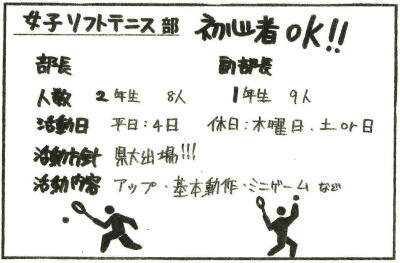 女子ソフトテニス部 初心者OK!!
部長 副部長
人数 2年生 8人 1年生 9人
活動日 平日:4日 休日:木曜日、土or日
活動方針 県大出場!!!
活動内容 アップ・基本動作・ミニゲームなど